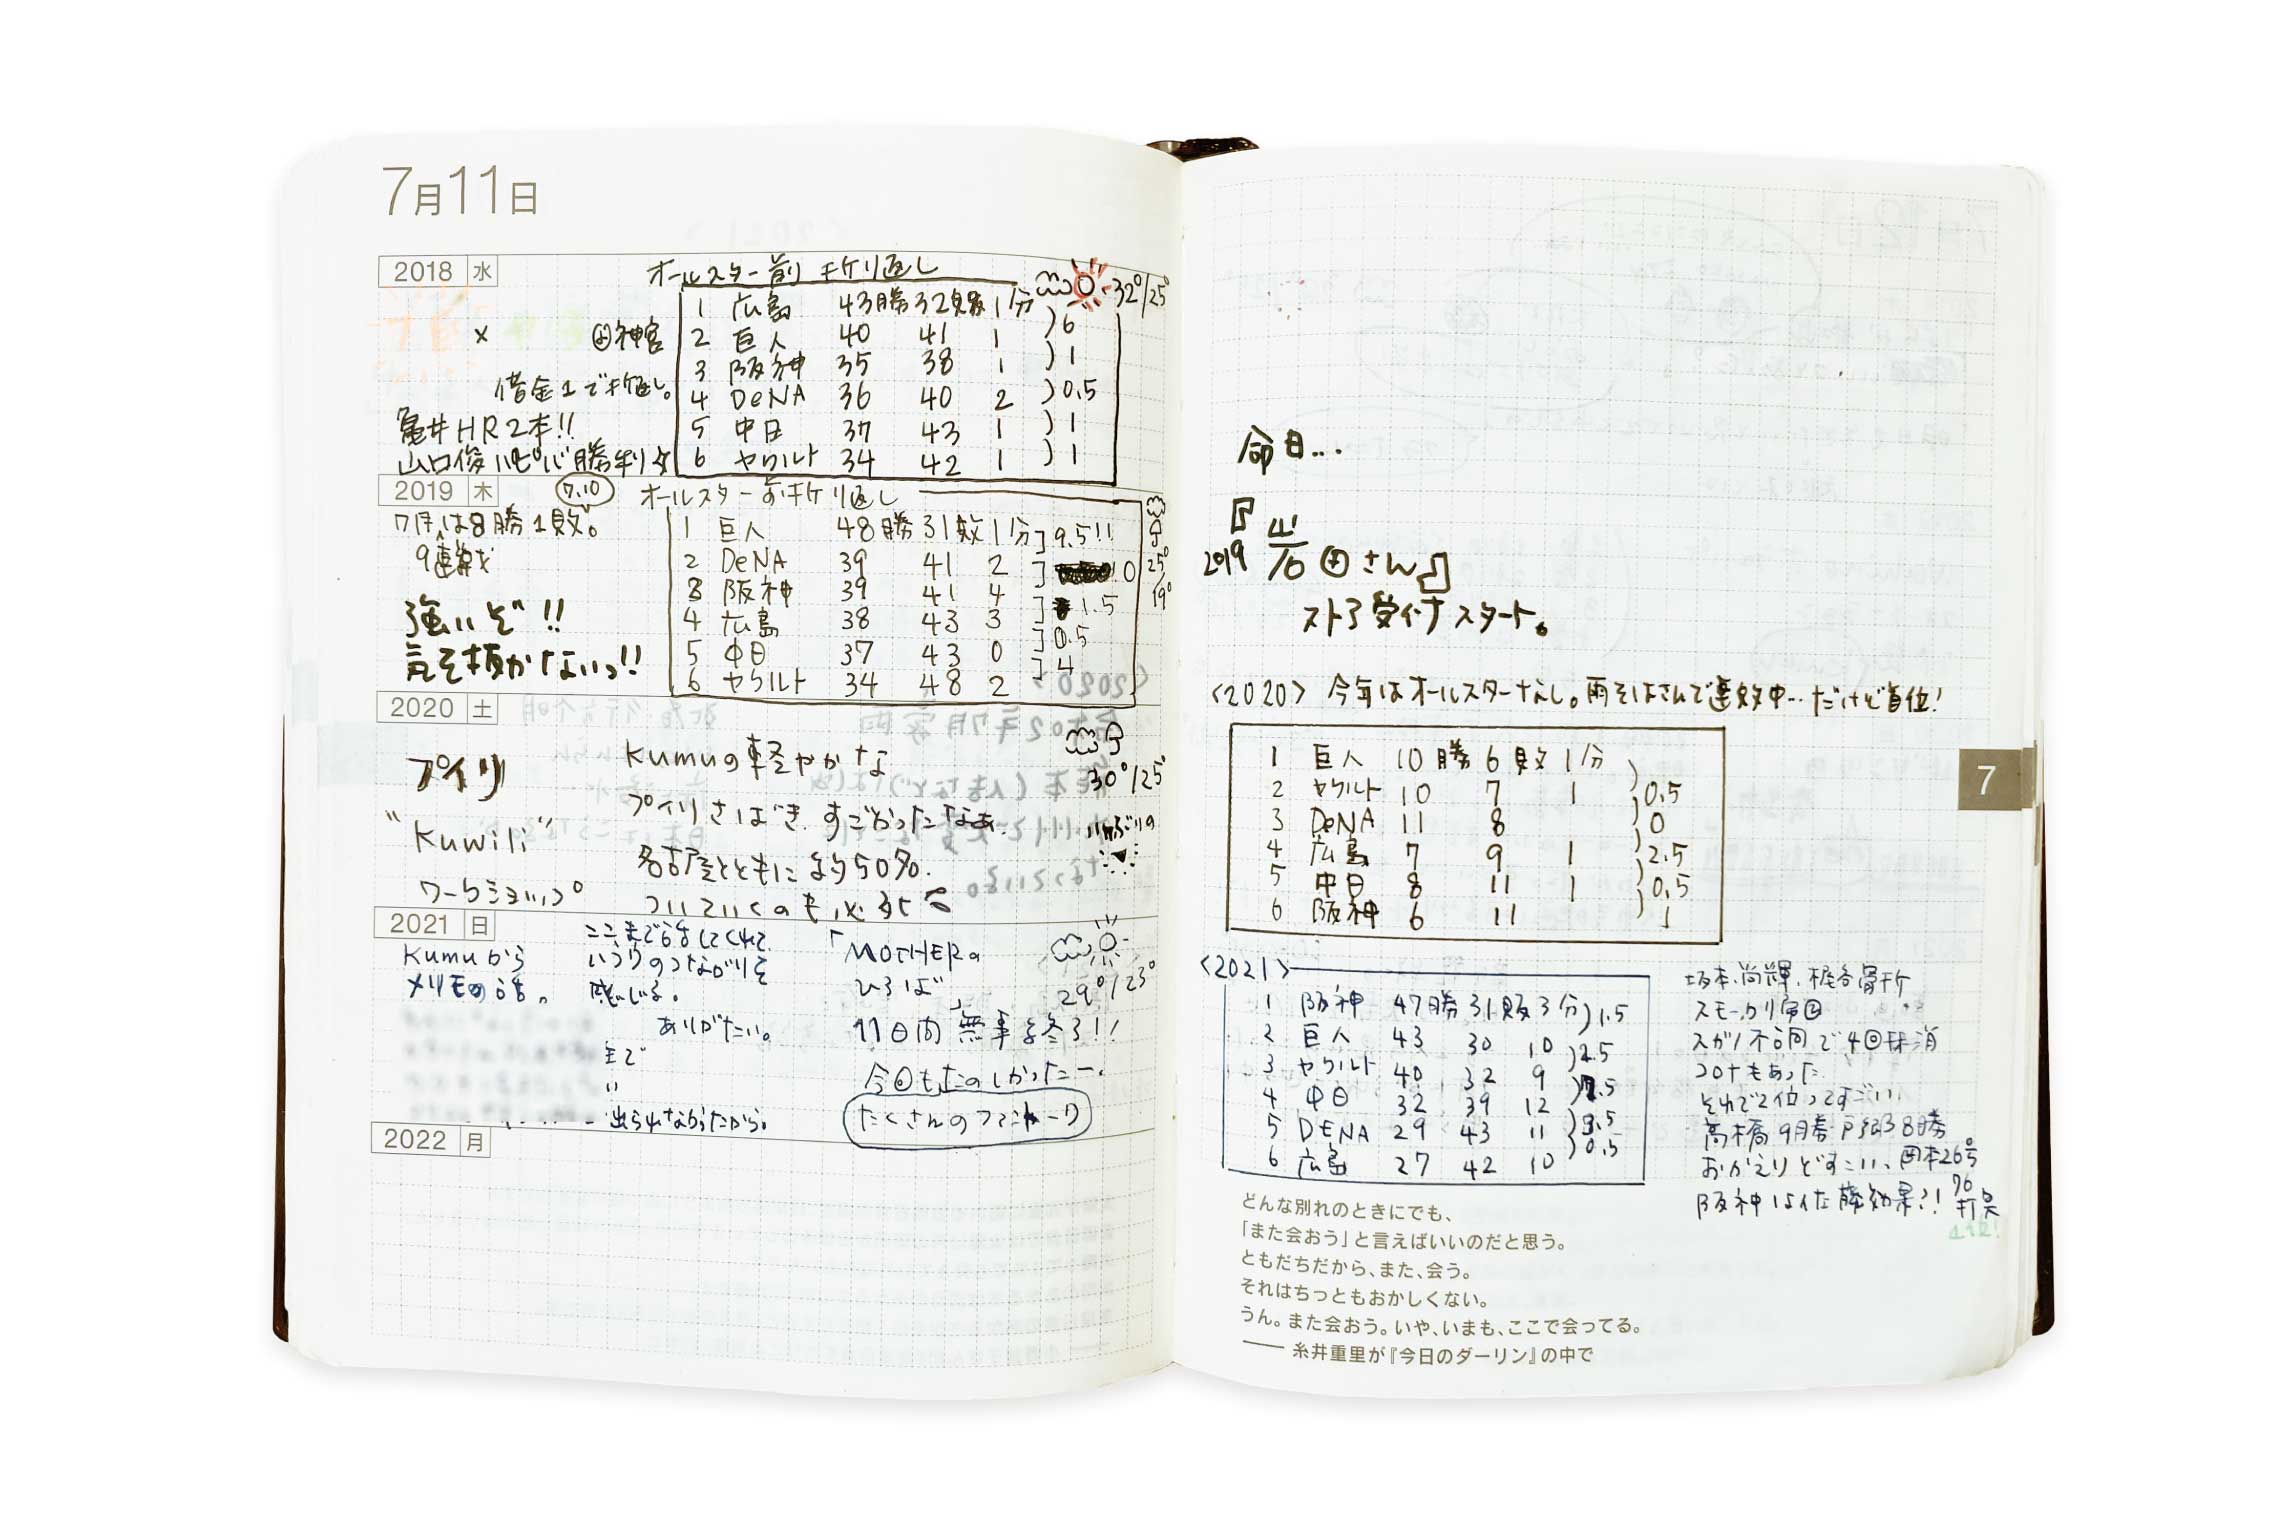 7月11日
2018 水
オールスター前 折り返し
32°/25°
1 広島 43勝 32敗 1分
2 巨人 40 41 1 )6
3 阪神 35 38 1 )1
4 DeNA 36 40 2 )0.5
5 中日 37 43 1 )1
6 ヤクルト 34 42 1 )1
× 神宮
借金1で折返し。
亀井HR2本!!
山口俊 勝利
2019 木
7.10
オールスター前折り返し
1 巨人 48勝 31敗 1分
2 DeNA 39 41 2 ]9.5!!
3 阪神 39 41 4 ]0
4 広島 38 43 3 ]1.5
5 中日 37 43 0 ]0.5
6 ヤクルト 34 48 2 ]4
25°/19°
7月は8勝1敗。
9連戦
強いぞ!!
気を抜かないっ!!
2020 土
30°/25°
プイリ
"Kuwili"
ワークショップ
Kumuの軽やかな
プイリさばき、すごかったなぁ。
名古屋とともに約50名。
ついていくのも必死
2021 日
29°/23°
Kumuから
メリモの話。
ここまで話してくれて、
いつわりのつながりを
感じる。
ありがたい。
まで
い
出られなかったから。
「MOTHERの
ひろば」
11日間 無事を終了!!
今回もたのしかったー。
たくさんの
2022 月
命日...
『山
2019 さん』
スト了受付スタート。
<2020> 今年はオールスターなし。雨をはさんで連敗中…だけど首位!
1 巨人 10勝 6敗 1分
2 ヤクルト 10 7 1 )0.5
3 DeNA 11 8 )0
4 広島 7 9 1 )2.5
5 中日 8 11 1 )0.5
6 阪神 6 11 )1
<2021>
1 阪神 47勝 31敗 3分
2 巨人 43 30 10 )1.5
3 ヤクルト 40 32 9 )2.5
4 中日 32 39 12
5 DENA 29 43 11 )3.5
6 広島 27 42 10 )0.5
坂本、尚輝、梶谷骨折
スモーク帰国
スガノ不調で4回抹消
コロナもあった
それで2位ってすごい。
高橋9勝 戸郷8勝
おかえりどすこい、岡本26号
76打点
阪神は佐藤効果?!
7
どんな別れのときにでも、
「また会おう」と言えばいいのだと思う。
ともだちだから、また、会う。
それはちっともおかしくない。
うん。また会おう。いや、いまも、ここで会ってる。
—— 糸井重里が『今日のダーリン』の中で